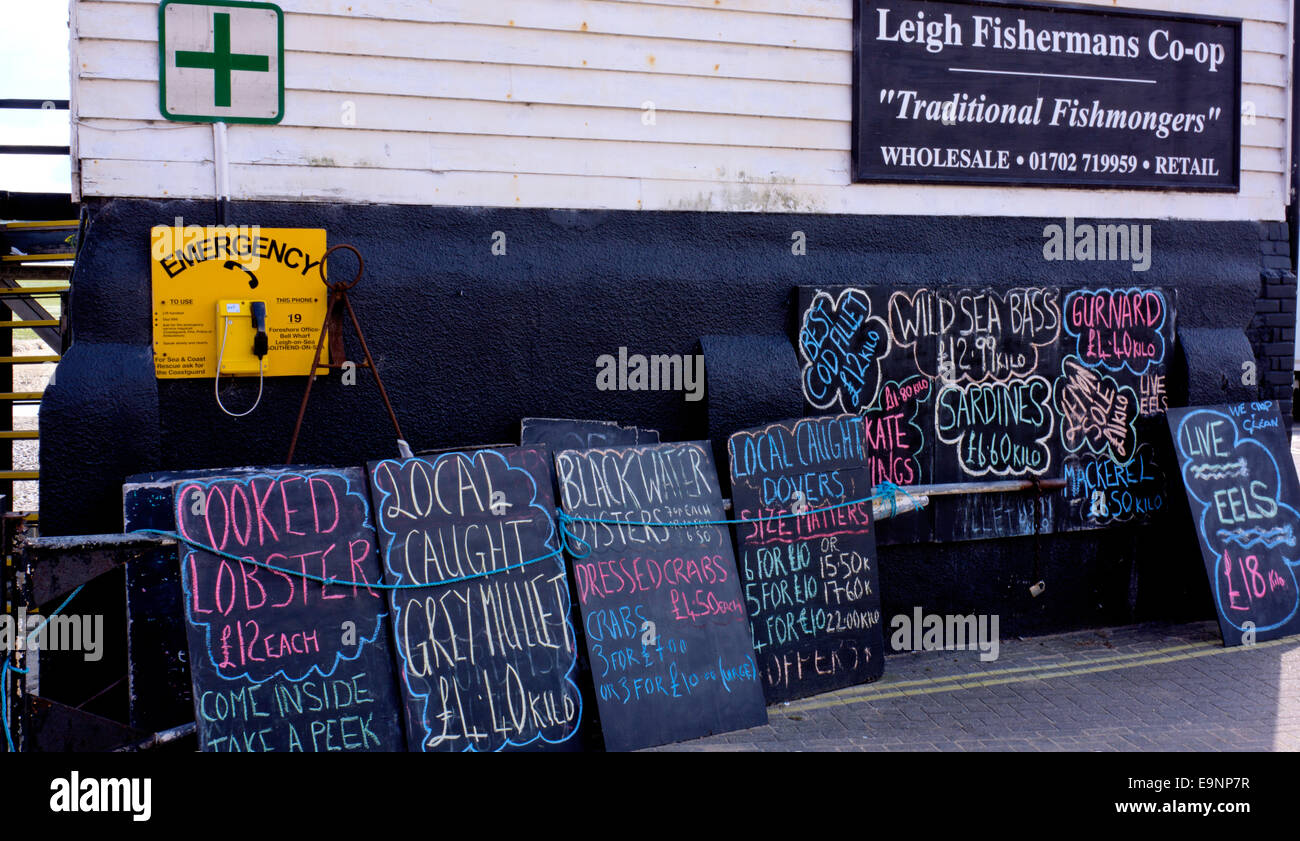 Leigh Fishermans Co-op
"Traditional Fishmongers"
WHOLESALE • 01702 719959 • RETAIL
EMERGENCY
TO USE
THIS PHONE
19
Foreshore Office-
Bell Wharf
Leigh-on-Sea
SOUTHEND-ON-SEA
For Sea & Coast
Rescue ask for
the Coastguard
BEST
COD FILLET
£12 KILO
WILD SEA BASS
£12.99 KILO
GURNARD
£4.40 KILO
£1.80 KILO
KATE
WINGS
SARDINES
£6.60 KILO
SOLE
£11 KILO
LIVE
EELS
MACKEREL
.50 KILO
WE CHOP
& CLEAN
LIVE
EELS
£18 KILO
OOKED
LOBSTER
£12 EACH
COME INSIDE
TAKE A PEEK
LOCAL
CAUGHT
GREY MULLET
£4.40 KILO
BLACKWATER
OYSTERS 74P EACH
DRESSED CRABS
£4.50 EACH
CRABS
3 FOR £7.00
OR 3 FOR £10.00 (LARGE)
LOCAL CAUGHT
DOVERS
SIZE MATTERS
6 FOR £10 OR
5 FOR £10 15.50 K
4 FOR £10 17.60 K
22.00 KILO
OFFER
alamy
E9NP7R
www.alamy.com